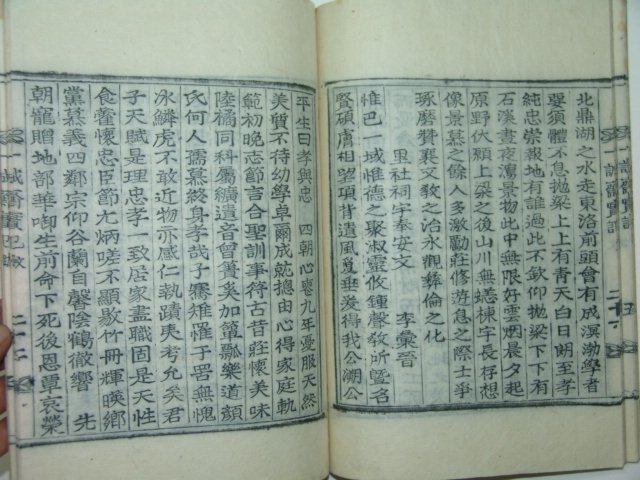 北鼎湖之水走東洛前頭曾有成溟渤學者
要須體不息抛梁上上有青天白日朗至孝
純忠崇報地有誰過此不欽仰抛梁下下有
石溪晝夜瀉景物此中無限好雲烟晨夕起
原野伏願上梁之後山川無恙棟宇長存想
像景慕之餘人多激勵莊修遊息之際士爭
琢磨贊襄文敎之治永觀彛倫之化
里社祠宇奉安文
李彙晉
惟巴一域惟德之聚淑靈攸鍾聲敎所曁名
賢碩膚相望項背遺風最垂裘得我公溯公
平生曰孝與忠 四朝心喪九年憂服天然
美質不待幼學卓爾成就摠由心得家庭軌
範初晚志節言合聖訓事符古昔莊懷美味
陸橘同科屬纊遺音曾簀奚加簞瓢樂道顔
氏何人孺慕終身孝哉子騫雉罹子罟無愧
氷鱗虎不敢近物亦感仁執蹟夷考允矣君
子天賦是理忠孝一致居家盡職固是天性
食薺懷忠臣節尤炳嗟不顯敭竹冊輝暎鄕
黨慕義四鄰宗仰谷蘭自馨陰鶴徹響 先
朝寵贈地部華啣生前命下死後恩覃哀榮